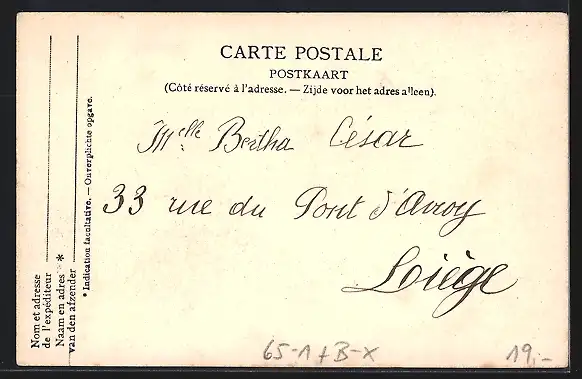 CARTE POSTALE
POSTKAART
(Côté réservé à l'adresse. — Zijde voor het adres alleen).
Melle Bertha César
33 rue du Pont d'Avroy
Liège
Nom et adresse
de l'expéditeur
Naam en adres *
van den afzender
* Indication facultative. — Onverplichte opgave.
65-1 + B-X
19,-